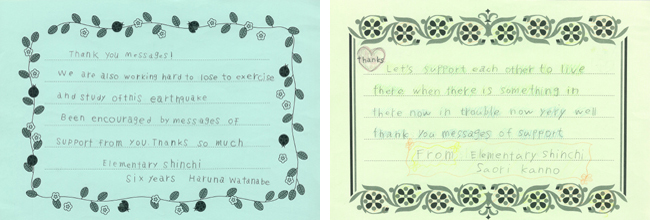 Thank you messages!
We are also working hard to lose to exercise
and study of this earthquake
Been encouraged by messages of
support from you Thanks so much
Elementary shinchi
Six years Haruna Watanabe
thanks
Let's support each other to live
there when there is something in
there now in trouble now very well
thank you messages of support
From Elementary Shinchi
Saori Kanno